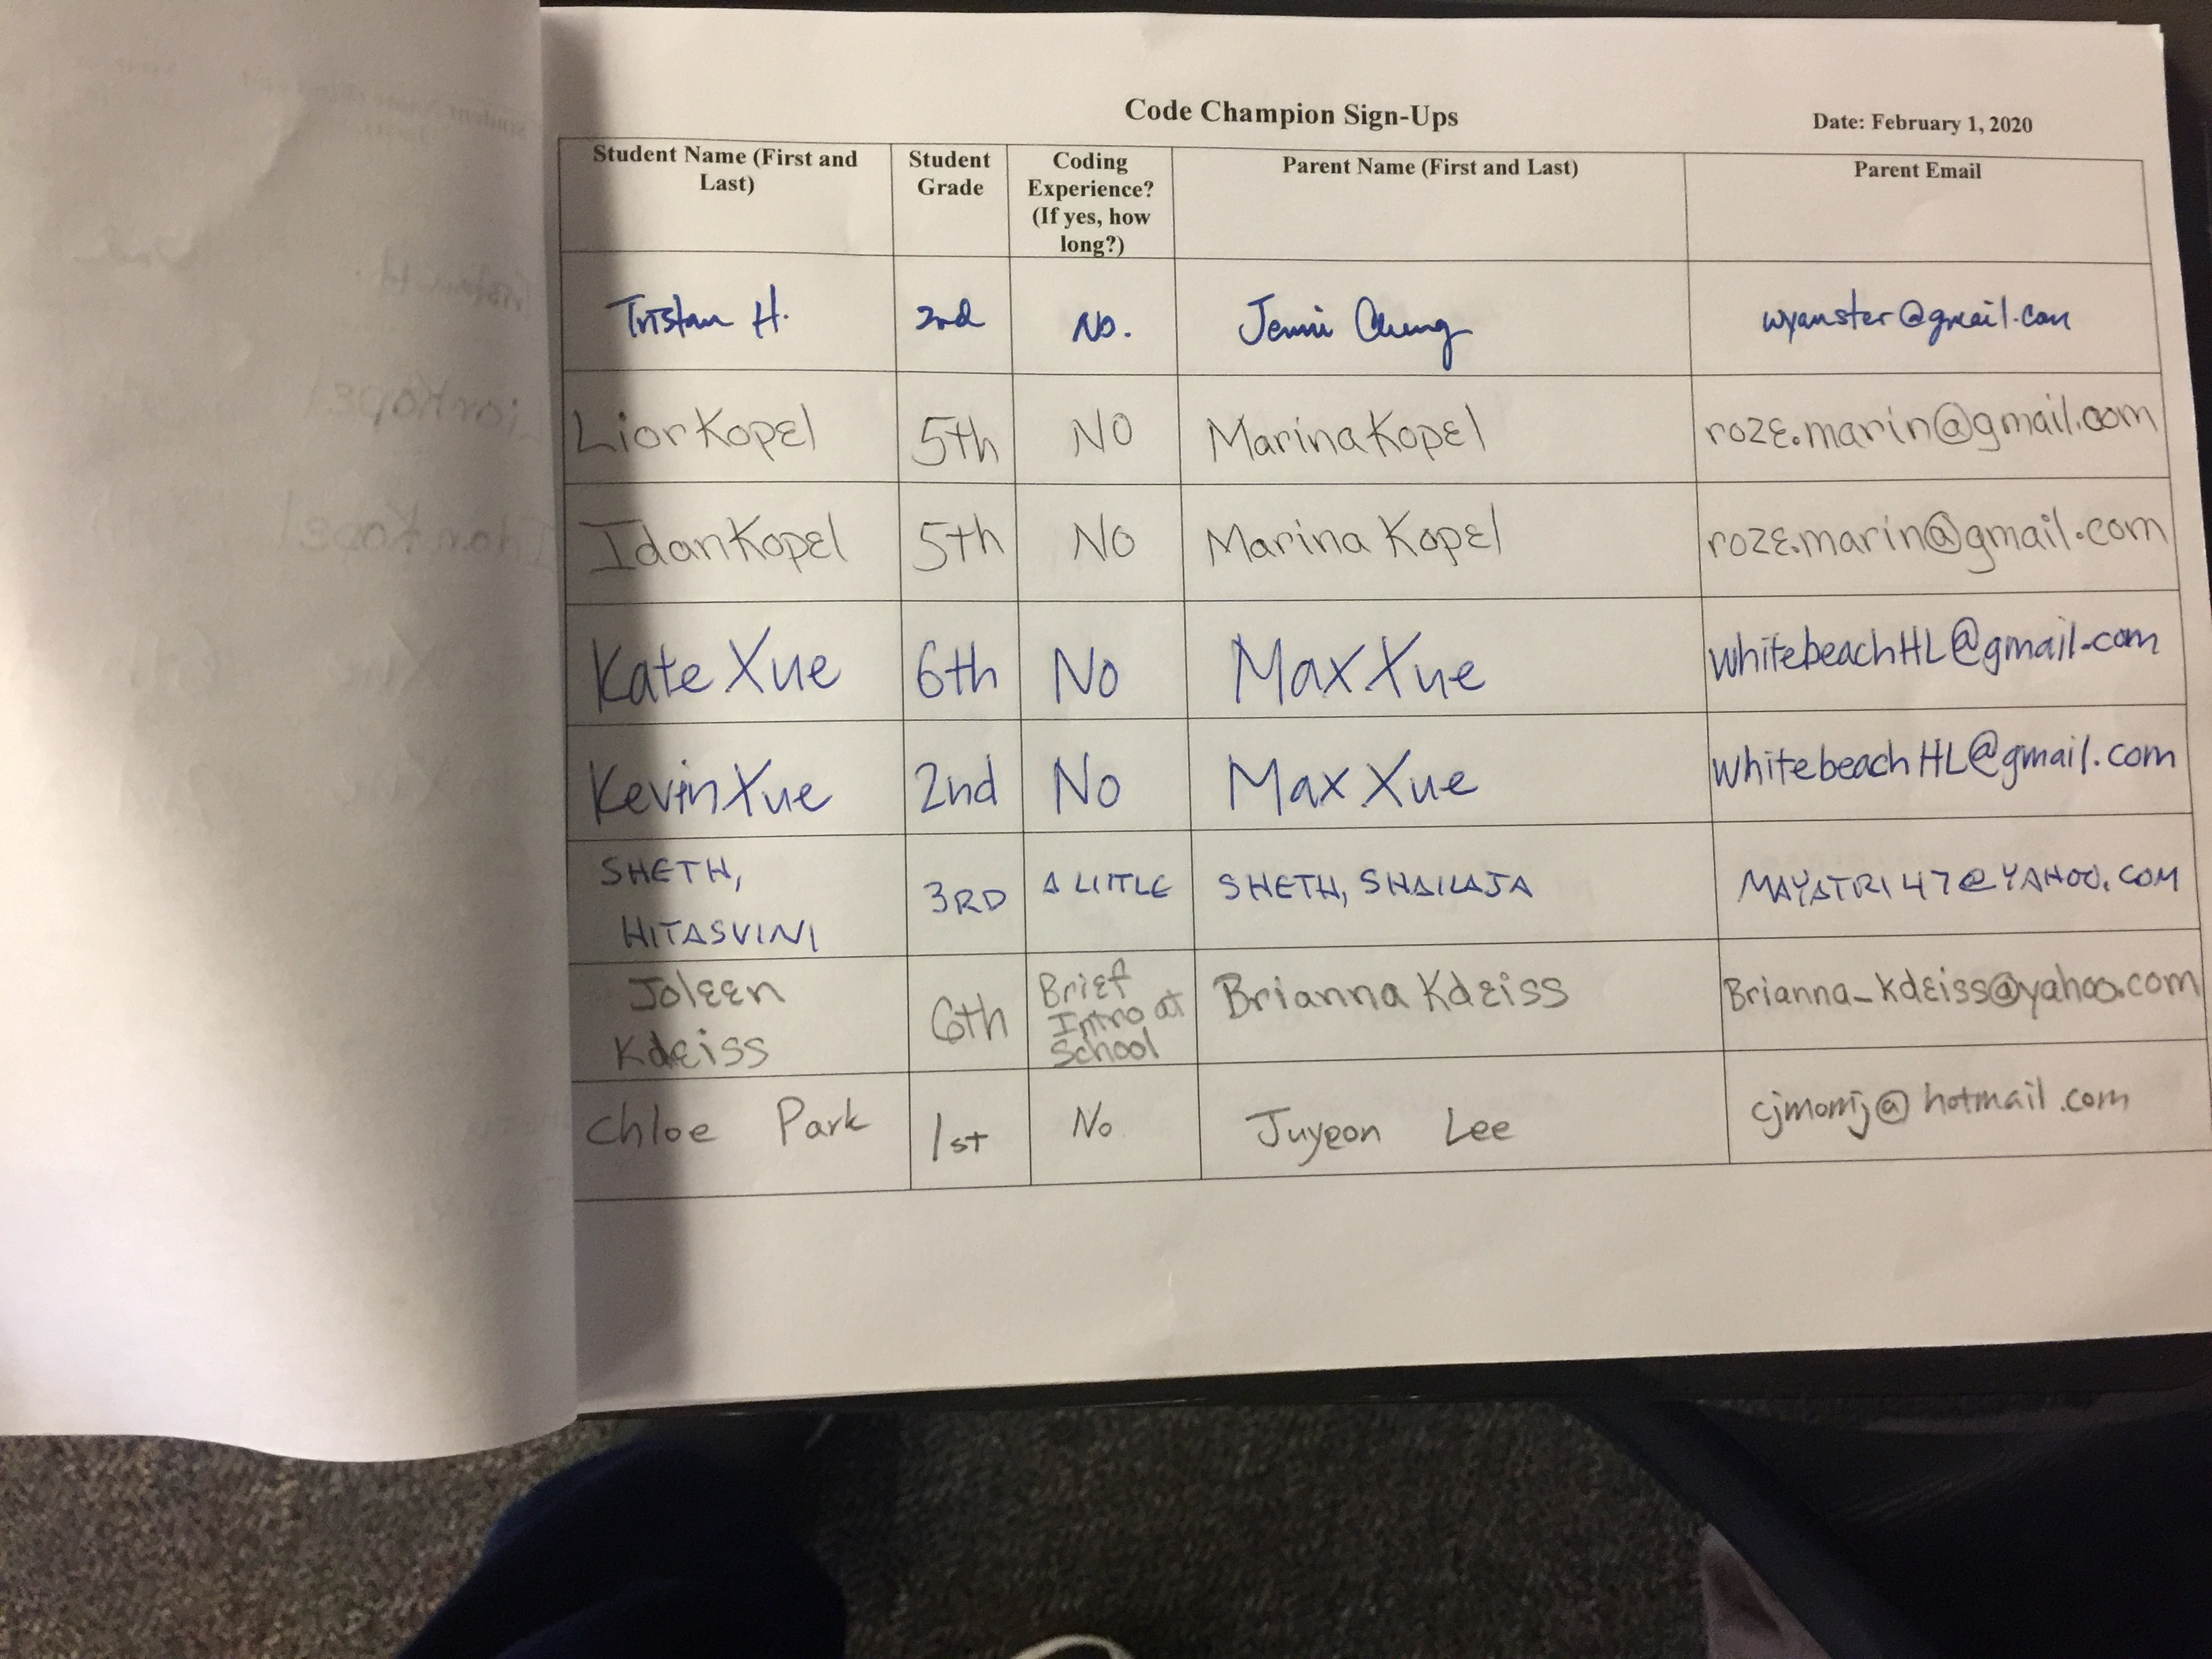 Code Champion Sign-Ups
Date: February 1, 2020
Student Name (First and
Last)
Student
Grade
Coding
Experience?
(If yes, how
long?)
Parent Name (First and Last)
Parent Email
Tristan H.
2nd
No.
Jenni
wyamster@gmail.com
Lior Kopel
5th
No
Marina Kopel
roze.marin@gmail.com
Idan Kopel
5th
No
Marina Kopel
roze.marin@gmail.com
Kate Xue
6th
No
Max Xue
WhitebeachHL@gmail.com
Kevin Xue
2nd
No
Max Xue
WhitebeachHL@gmail.com
SHETH,
HITASVINI
3RD
A LITTLE
SHETH, SHAILAJA
Joleen
Kdeiss
6th
Brief
Intro at
School
Brianna Kdeiss
Brianna_kdeiss@yahoo.com
Chloe Park
1st
No
Juyeon Lee
cjmomj@hotmail.com